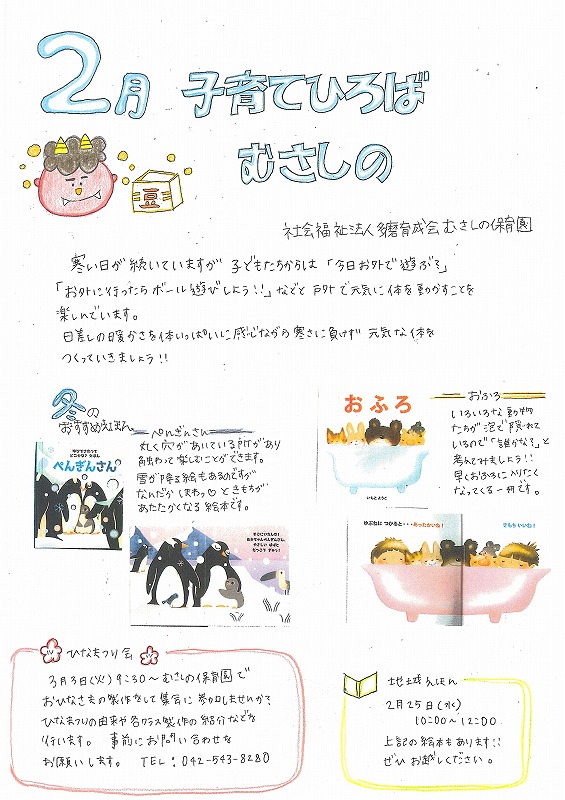 2月 子育てひろば
むさしの
豆
社会福祉法人多磨育成会むさしの保育園
寒い日が続いていますが 子どもたちからは「今日お外で遊ぶ?」
「お外に行ったらボール遊びしよう!!」などと 戸外で元気に体を動かすことを
楽しんでいます。
日差しの暖かさを体いっぱいに感じながら寒さに負けず 元気な体を
つくっていきましょう!!
冬の
おすすめえほん
ぺんぎんさん
丸く穴があいている所があり
触わって楽しむことができます。
雪が降る絵もあるのですが
なんだかほわっ♡ときもちが
あたたかくなる絵本です。
ぺんぎんさん
おふろ
いもとようこ
おふろ
いろいろな動物
たちが泡で隠れて
いるので「誰かな?」と
考えてみましょう!!
早くおふろに入りたく
なってくる一冊です。
ゆぶねに つかると・・・あったかいね!
きもちいいね!
ひなまつり会
3月3日(火)9:30〜むさしの保育園で
おひなさまの製作をして集会に参加しませんか?
ひなまつりの由来や各クラス製作の紹介などを
行います。 事前にお問い合わせを
お願いします。 TEL:042-543-8280
地域えほん
2月25日(水)
10:00〜12:00
上記の絵本もあります!!
ぜひお越しください。